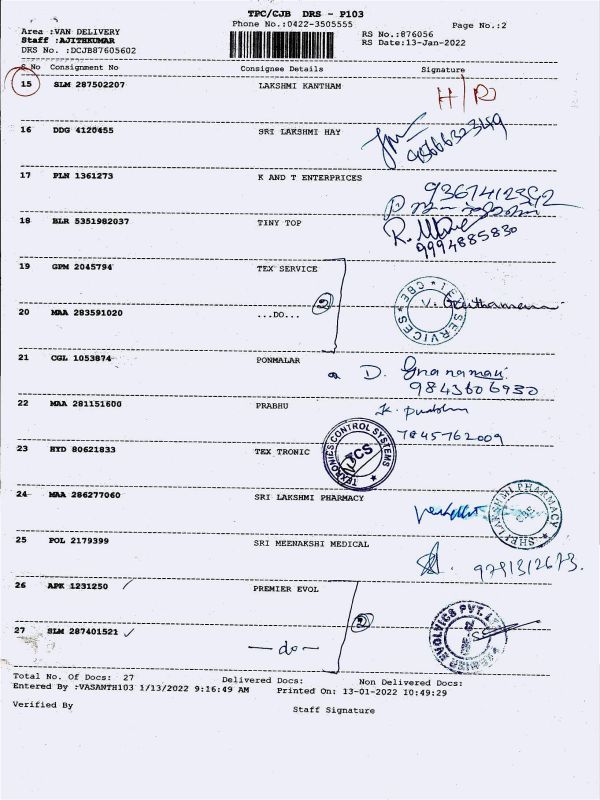 TPC/CJB DRS - P103
Phone No.:0422-3505555
Page No.:2
Area :VAN DELIVERY
Staff :AJITHKUMAR
DRS No. :DCJB87605602
RS No.:876056
RS Date:13-Jan-2022
S No Consignment No Consignee Details Signature
15 SLM 287502207 LAKSHMI KANTHAM H/O
16 DDG 4120455 SRI LAKSHMI HAY
17 PLN 1361273 K AND T ENTERPRICES 9367412392
18 BLR 5351982037 TINY TOP 9994885830
19 GPM 2045794 TEX SERVICE
TEX SERVICES CBE
20 MAA 283591020 ...DO...
21 CGL 1053874 PONMALAR D. Gnanamani
9843606930
22 MAA 281151600 PRABHU K. Prabhu
7845762009
23 HYD 80621833 TEX TRONIC TEXRONICS CONTROL SYSTEMS TCS
24 MAA 286277060 SRI LAKSHMI PHARMACY SHRI LAKSHMI PHARMACY CBE
25 POL 2179399 SRI MEENAKSHI MEDICAL 9791312673.
26 APK 1231250 PREMIER EVOL 2
PREMIER EVOLVICS PVT. LTD
27 SLM 287401521 — do —
Total No. Of Docs: 27 Delivered Docs: Non Delivered Docs:
Entered By :VASANTH103 1/13/2022 9:16:49 AM Printed On: 13-01-2022 10:49:29
Verified By Staff Signature